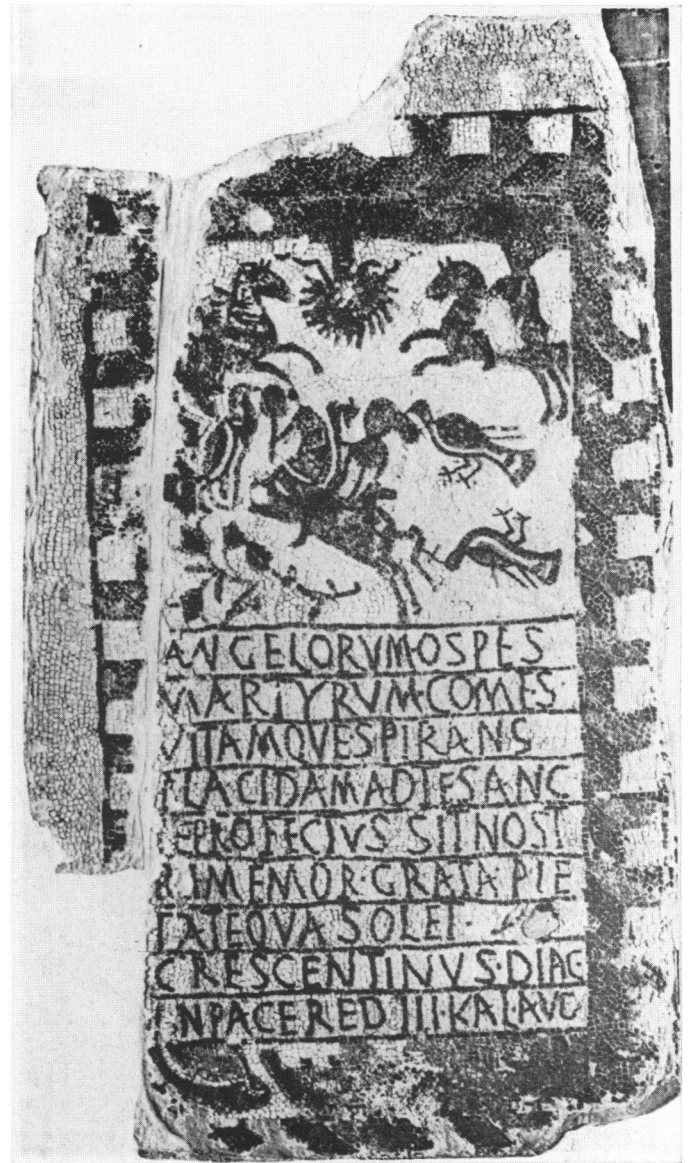 ANGELORVM·OSPES
MARTYRVM·COMES·
VITAMQVESPIRANS
PLACIDAMADTESANC
TEPROFECTVS SITNOST
RIMEMOR·GRATA·PIE
TATEQVA SOLET·
CRESCENTINVS·DIAC
INPACERED III·KAL·AVG